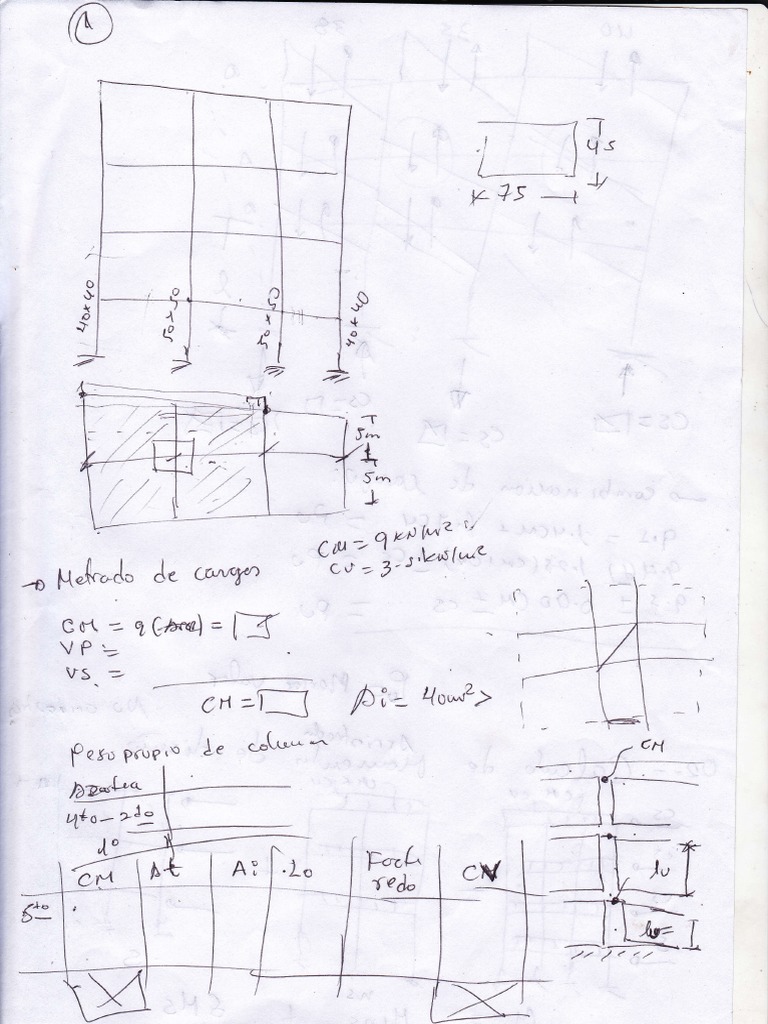 1
45
75
40x40
50x50
50x50
40x40
5m
5m
CM = 9 kN/m²
CV = 3.5 kN/m²
→ Metrado de cargas
CM = 9 (Area) =
VP =
VS =
CM =
Ai = 40m² >
CM
Peso propio de columna
Azotea
4to - 2do
1º
CM
At
Ai
Lo
Factr
redo
CV
5to
lu
lu=